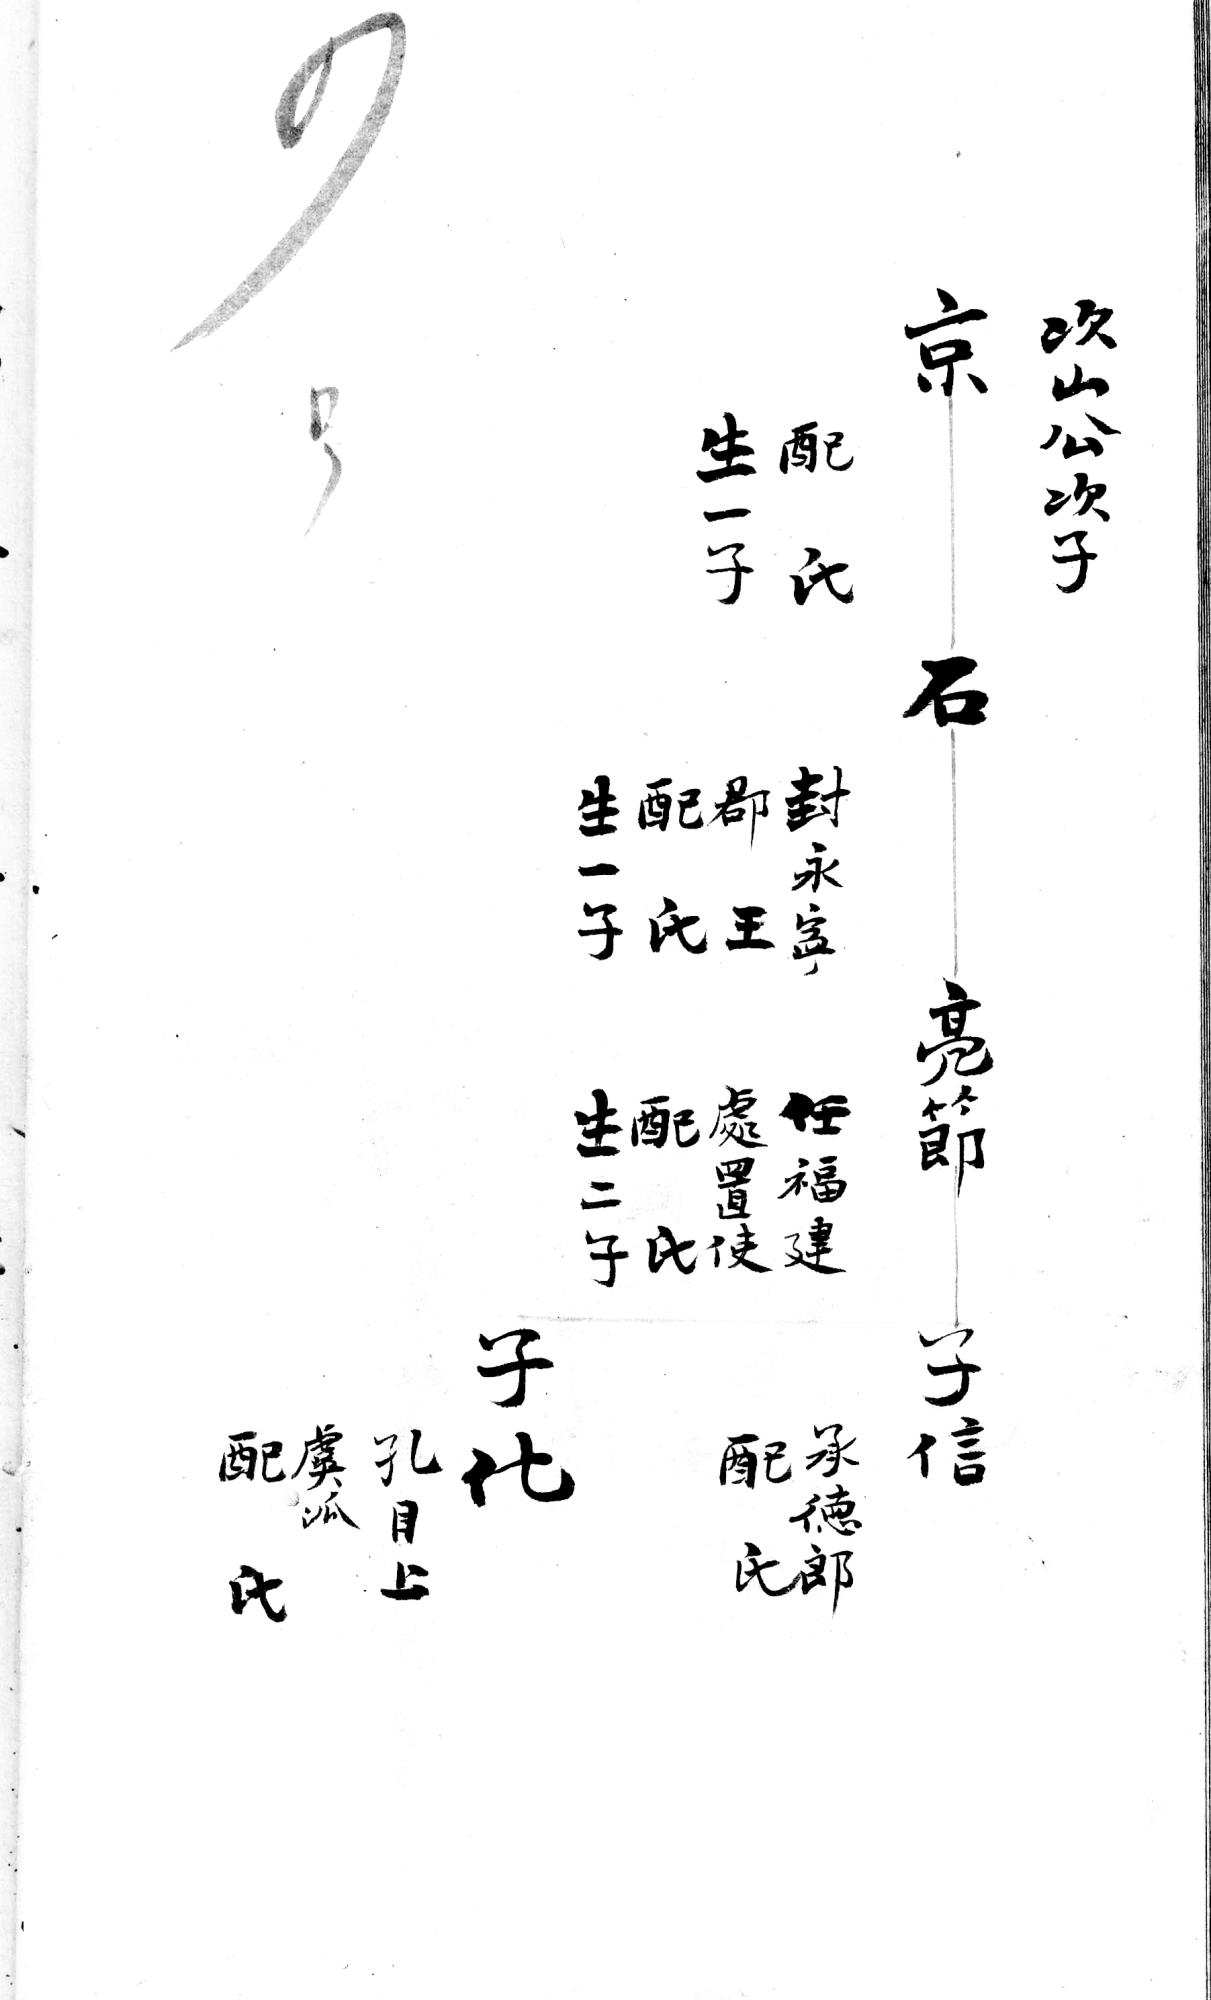 次山公次子
京
配 氏
生一子
石
封永寧
郡王
配 氏
生一子
亮節
任福建
處置使
配 氏
生二子
子信
承德郎
配 氏
子化
孔目上
虞派
配 氏
号